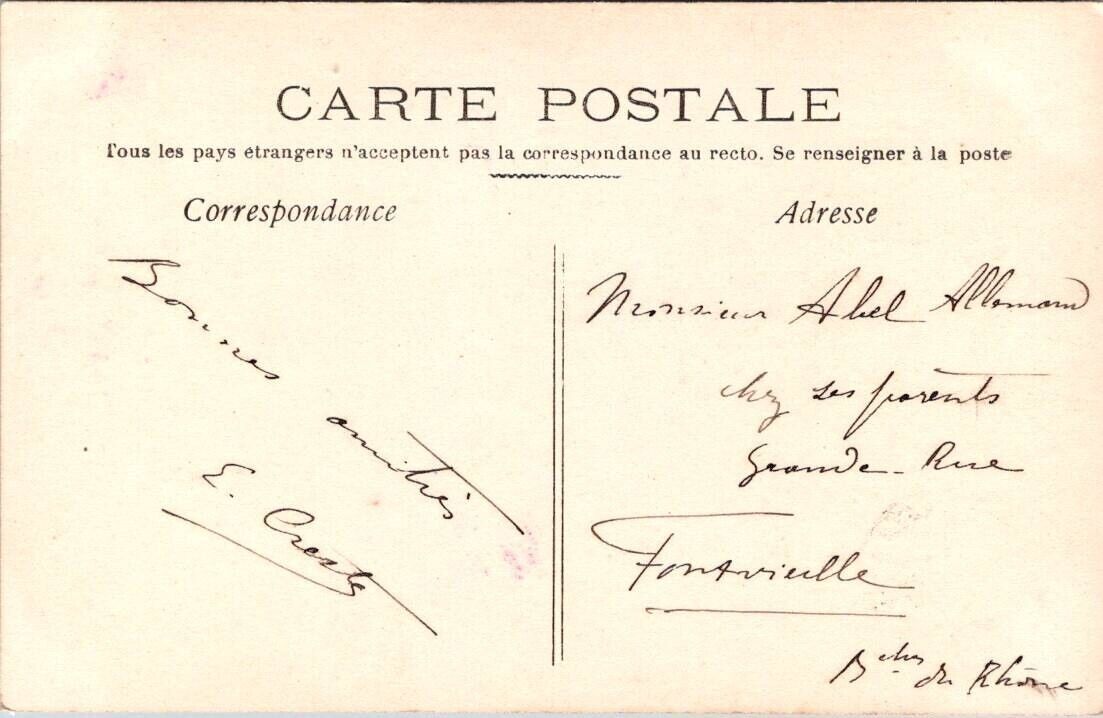 CARTE POSTALE
Tous les pays étrangers n'acceptent pas la correspondance au recto. Se renseigner à la poste
Correspondance
Bonnes
amitiés
E. Creste
Adresse
Monsieur Abel Allemand
chez ses parents
Grande-Rue
Fontvieille
Bches du Rhône